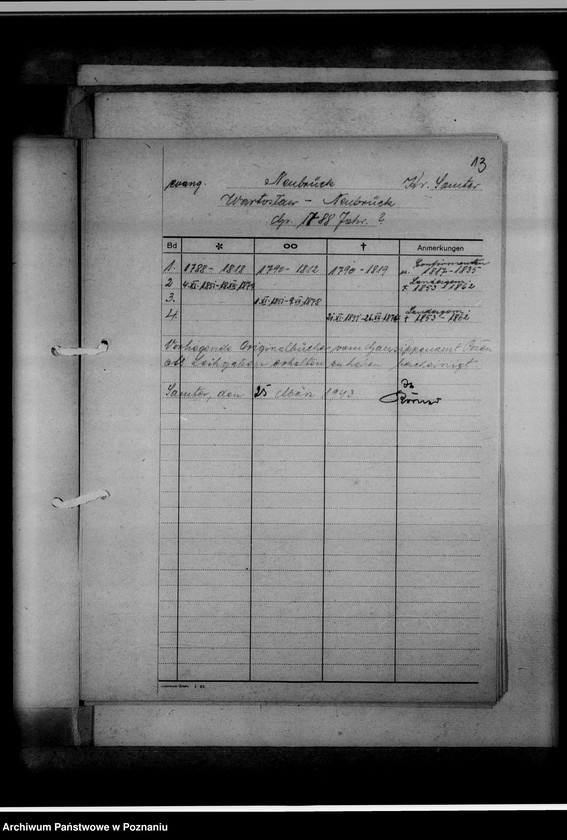 13
evang. Neubrück Kr. Samter
Wartosław - Neubrück
1788
Bd * ∞ † Anmerkungen
1. 1788 - 1818 1790 - 1812 1790 - 1819 Konfirmanden
1817 - 1835
2 4.XI.1851 - 1874 Landgem.
* 1853 - 1862
3. 1.VI.1851 - 9.VI.1878
4. 1851 - 26.XII.1874 Landgem.
† 1853 - 1862
Vorliegende Originalbücher vom Gausippenamt Posen
als Leihgaben erhalten zu haben bescheinigt.
Samter, den 25 März 1943
Archiwum Państwowe w Poznaniu